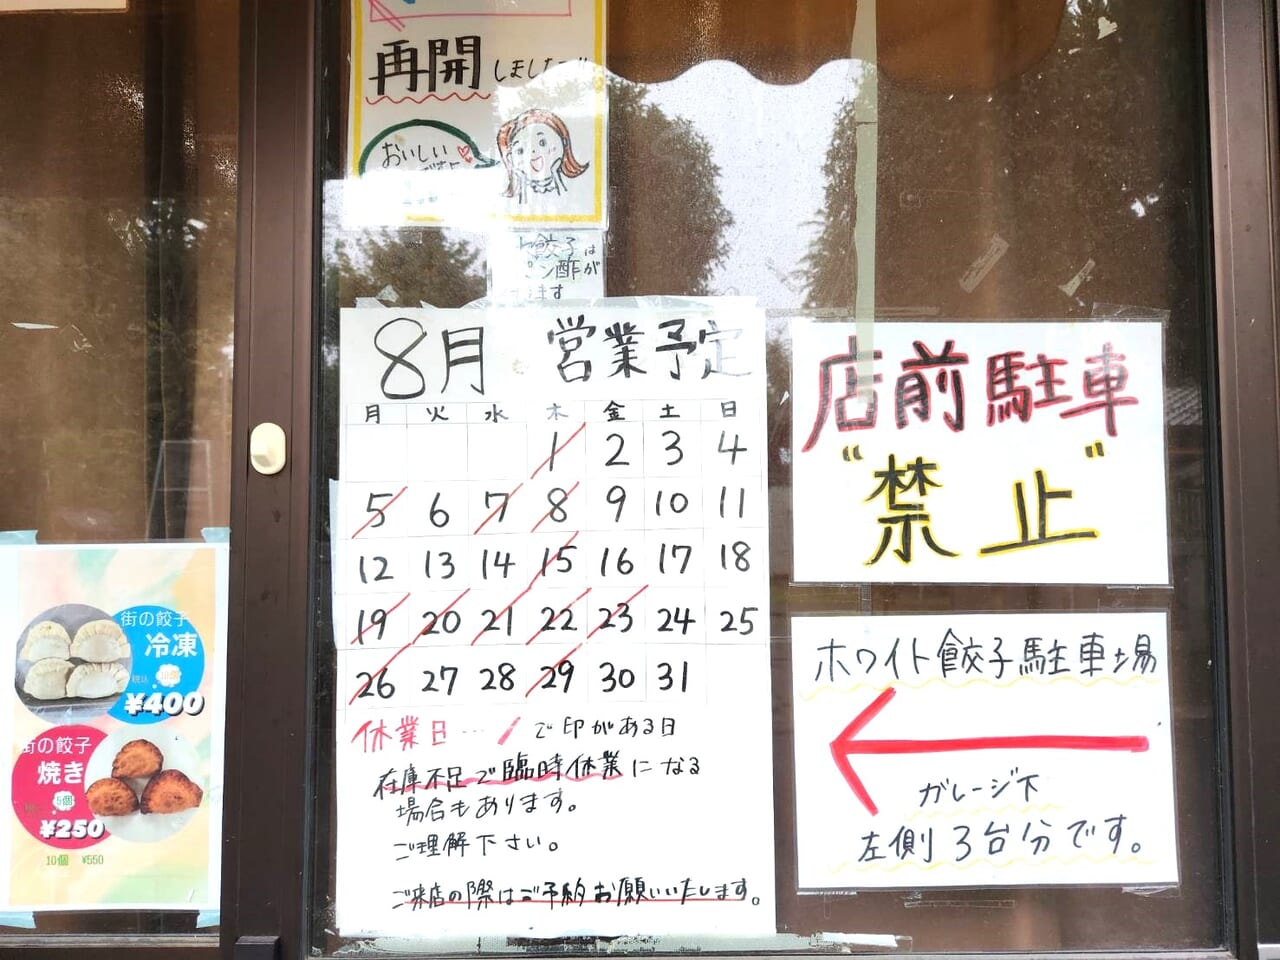 再開しました!!
おいしい
餃子は
ポン酢が
ます
8月 営業予定
月 火 水 木 金 土 日
1 2 3 4
5 6 7 8 9 10 11
12 13 14 15 16 17 18
19 20 21 22 23 24 25
26 27 28 29 30 31
休業日…/で印がある日
在庫不足で臨時休業になる
場合もあります。
ご理解下さい。
ご来店の際はご予約お願いいたします。
店前駐車
"禁止"
ホワイト餃子駐車場
ガレージ下
左側3台分です。
街の餃子
冷凍
税込
¥400
街の餃子
焼き
5個
¥250
10個 ¥550